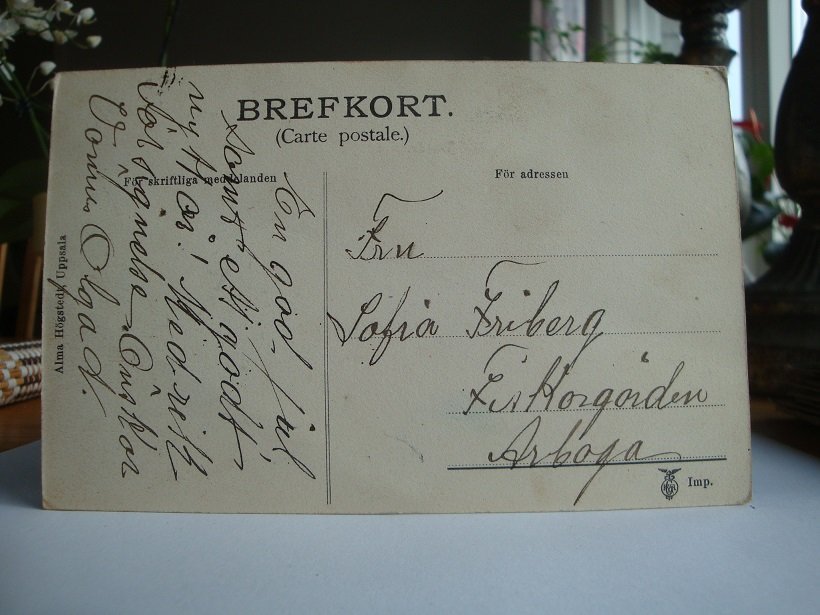 BREFKORT.
(Carte postale.)
För skriftliga meddelanden
För adressen
Alma Högstedt, Uppsala
En god jul
samt ett godt
nytt år! Med rik
välsignelse-önskan
Vännen Olga d.
Fru
Sofia Friberg
Arboga
Imp.